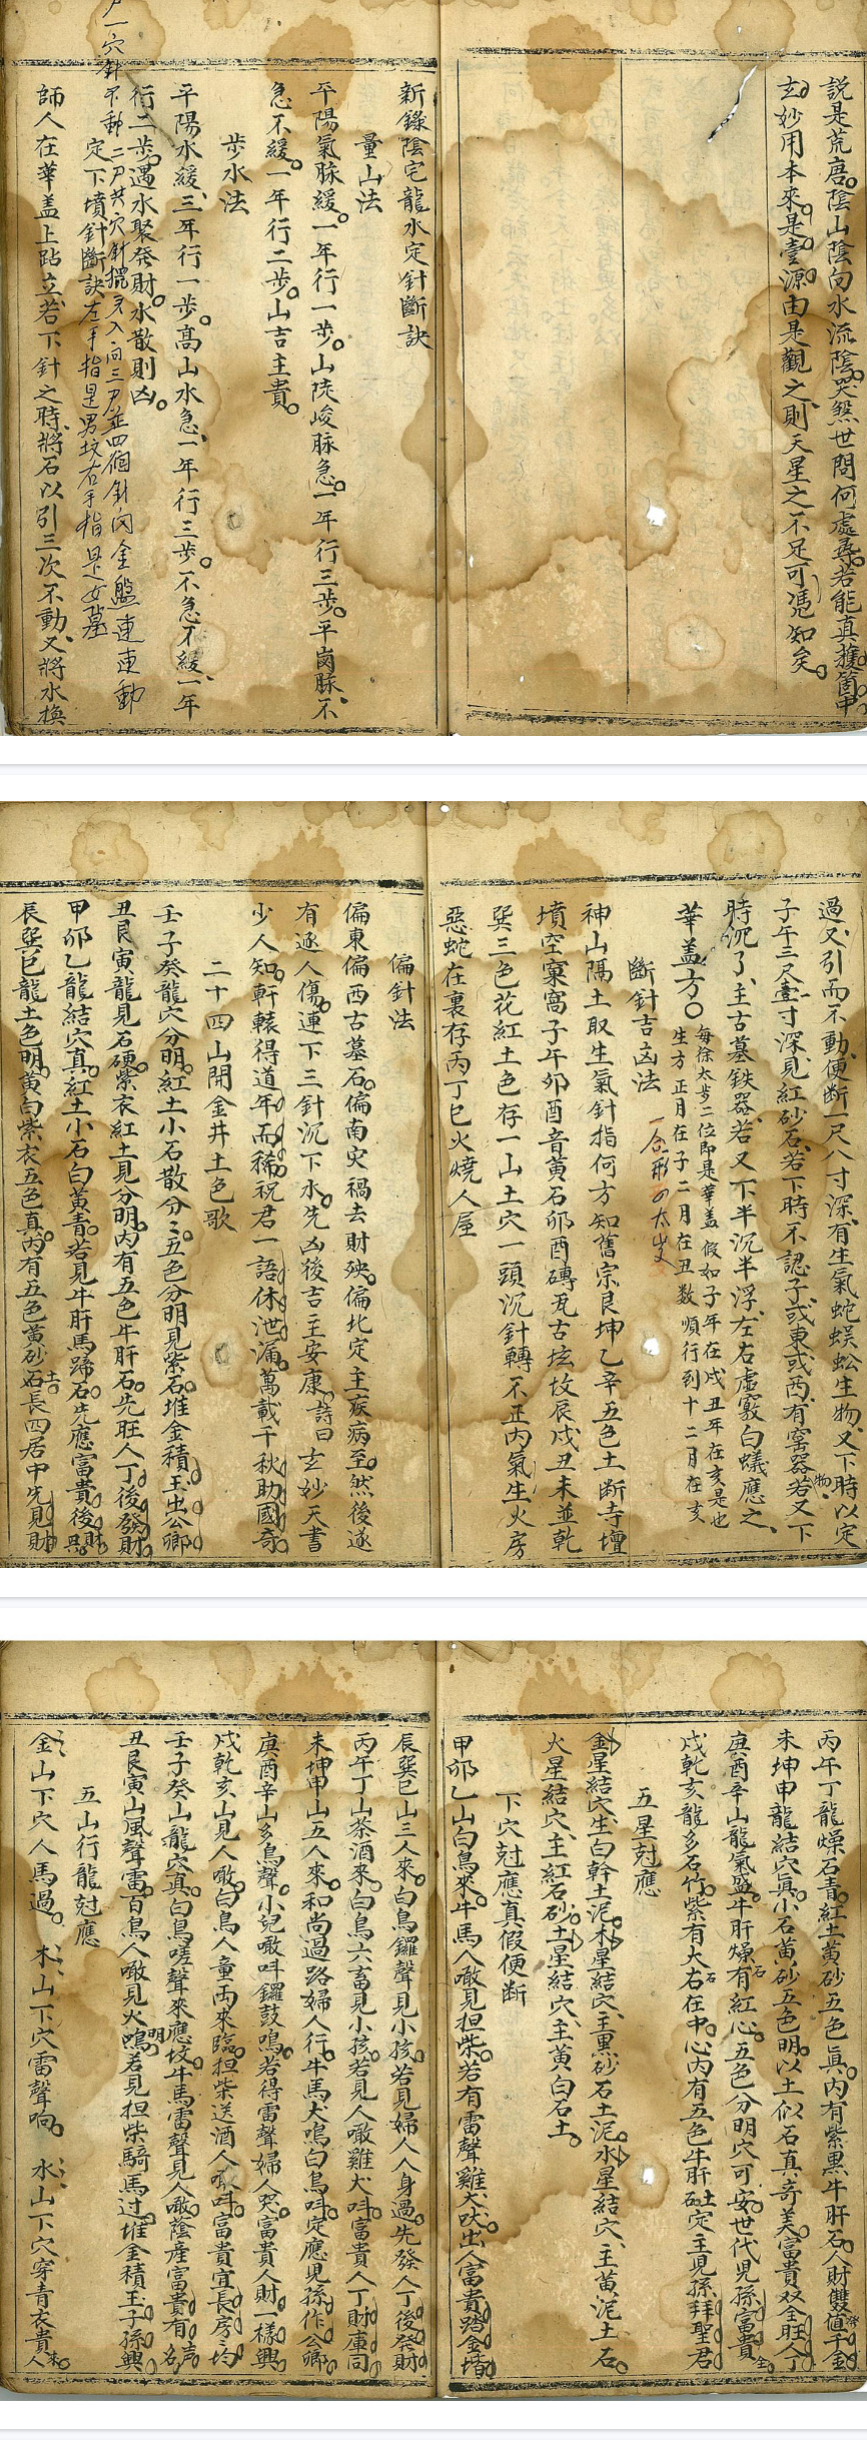 說是荒唐陰山陰向水流陰哭煞世問何處尋若能真獲箇中
玄妙用本來是壹源由是觀之則天星之不足可憑知矣
新錄陰宅龍水定針斷訣
量山法
平陽氣脉緩一年行一步山陡峻脉急一年行三步平崗脉不
急不緩一年行二步山吉主貴
步水法
平陽水緩三年行一步高山水急一年行三步不急不緩一年
行二步遇水聚發財水散則凶
定下墳針斷訣左手指是男坟右手指是女墓
師人在華盖上跕立若下針之時將石以引三次不動又將水換
過又引而不動便斷一尺八寸深有生氣蛇蜈蚣生物又下時以定
子午三尺壹寸深見紅砂石若下時不認子或東或西有窰器物若又下
時沉了主古墓鉄器若又下半沉半浮左右虛竅白蟻應之
華盖方
每徐太步二位即是華盖 假如子年在戌丑年在亥是也
生方 正月在子二月在丑数順行到十二月在亥
斷針吉凶法
神山隔土取生氣針指何方知舊宗艮坤乙辛五色土斷寺壇
墳空窠窩子午卯酉音黃石卯酉磚瓦古坟故辰戌丑未並乾
巽三色花紅土色存一山土穴一頭沉針轉不正丙氣生火房
惡蛇在裏存丙丁巳火燒人屋
偏針法
偏東偏西古墓石偏南灾禍去財殃偏北定主疾病至然後遂
有逐人傷連下三針沉下水先凶後吉主安康詩曰玄妙天書
少人知軒轅得道年而稀祝君一語休泄漏萬載千秋助國奇
二十四山開金井土色歌
壬子癸龍穴分明紅土小石散分〻五色分明見紫石堆金積玉出公卿
丑艮寅龍見石硬紫衣紅土見分明內有五色牛肝石先旺人丁後發財
甲卯乙龍結穴真紅土小石白黃青若見牛肝馬蹄石先應富貴後財興
辰巽巳龍土色明黃白紫衣五色真內有五色黃砂石土長四居中先見財
丙午丁龍燥石青紅土黃砂五色真內有紫黑牛肝石人財雙值千金
未坤申龍結穴真小石黃砂五色明以土似石真奇美富貴双全旺人丁
庚酉辛山龍氣盛牛肝燥石有紅心五色分明穴可安世代児孫富貴全
戌乾亥龍多石竹紫有大右石在中心內有五色牛肝砡定主見孫拜聖君
五星尅應
金星結穴生白幹土泥木星結穴主黑砂石土泥水星結穴主黃泥土石
火星結穴主紅石砂土星結穴主黃白石土
下穴尅應真假便断
甲卯乙山白鳥來牛馬人噉見担柴若有雷聲雞犬吠出人富貴踏金堦
辰巽巳山三人來白鳥鑼聲見小孩若見婦人人身過先發人丁後發財
丙午丁山茶酒來白鳥六畜見小孩若見人噉雞犬呌富貴人丁財庫同
未坤申山五人來和尚過路婦人行牛馬犬鳴白鳥呌定應児孫作公卿
庚酉辛山多鳥聲小兒噉呌鑼鼓鳴若得雷聲婦人哭富貴人財一樣興
戌乾亥山見人噉白鳥人童雨來臨担柴送酒人噉呌富貴宜長房均
壬子癸山龍穴真白鳥嗟聲來應坟牛馬雷聲見人噉蔭産富貴有名声
丑艮寅山風聲雷百鳥人噉見火鳴明若見担柴騎馬过堆金積玉子孫興
五山行龍尅應
金山下穴人馬過 木山下穴雷聲响 水山下穴穿青衣貴人來